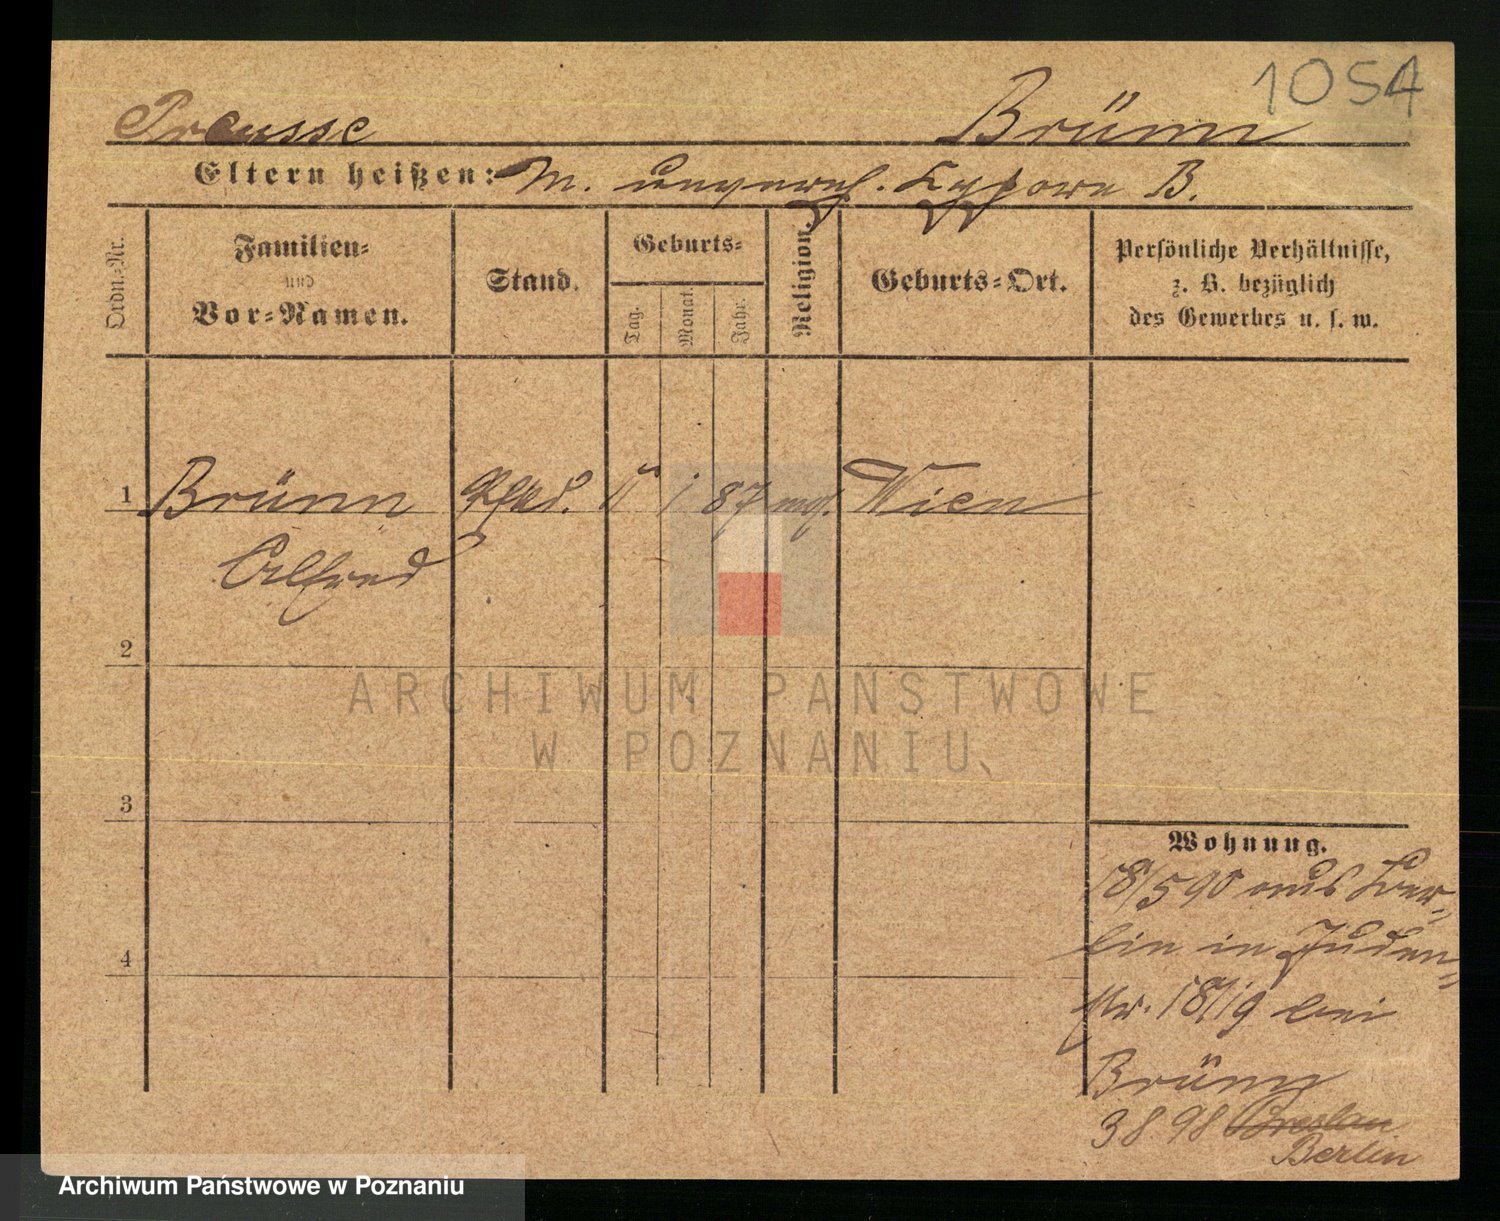 1054
Preusse Brünn
Eltern heißen: M. B.
Ordn.-Nr.
Familien-
und
Vor-Namen.
Stand.
Geburts-
Tag.
Monat.
Jahr.
Religion.
Geburts-Ort.
Persönliche Verhältnisse,
z. B. bezüglich
des Gewerbes u. s. w.
1 Brünn 87 Wien
Alfred
2
3
4
ARCHIWUM PAŃSTWOWE
W POZNANIU
Wohnung.
18/5 90 aus Ber-
lin in Juden-
str. 18/19 bei
Brünn
3 8 98 Breslau
Berlin
Archiwum Państwowe w Poznaniu